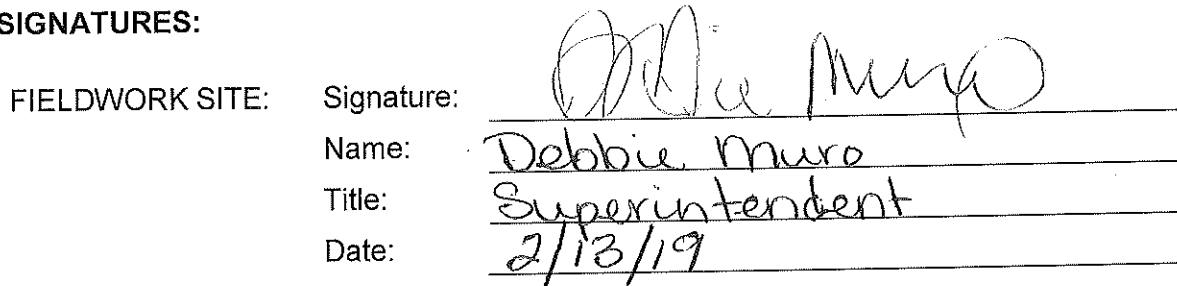 SIGNATURES:
FIELDWORK SITE: Signature: Debbie Muro
Name: Debbie Muro
Title: Superintendent
Date: 2/13/19